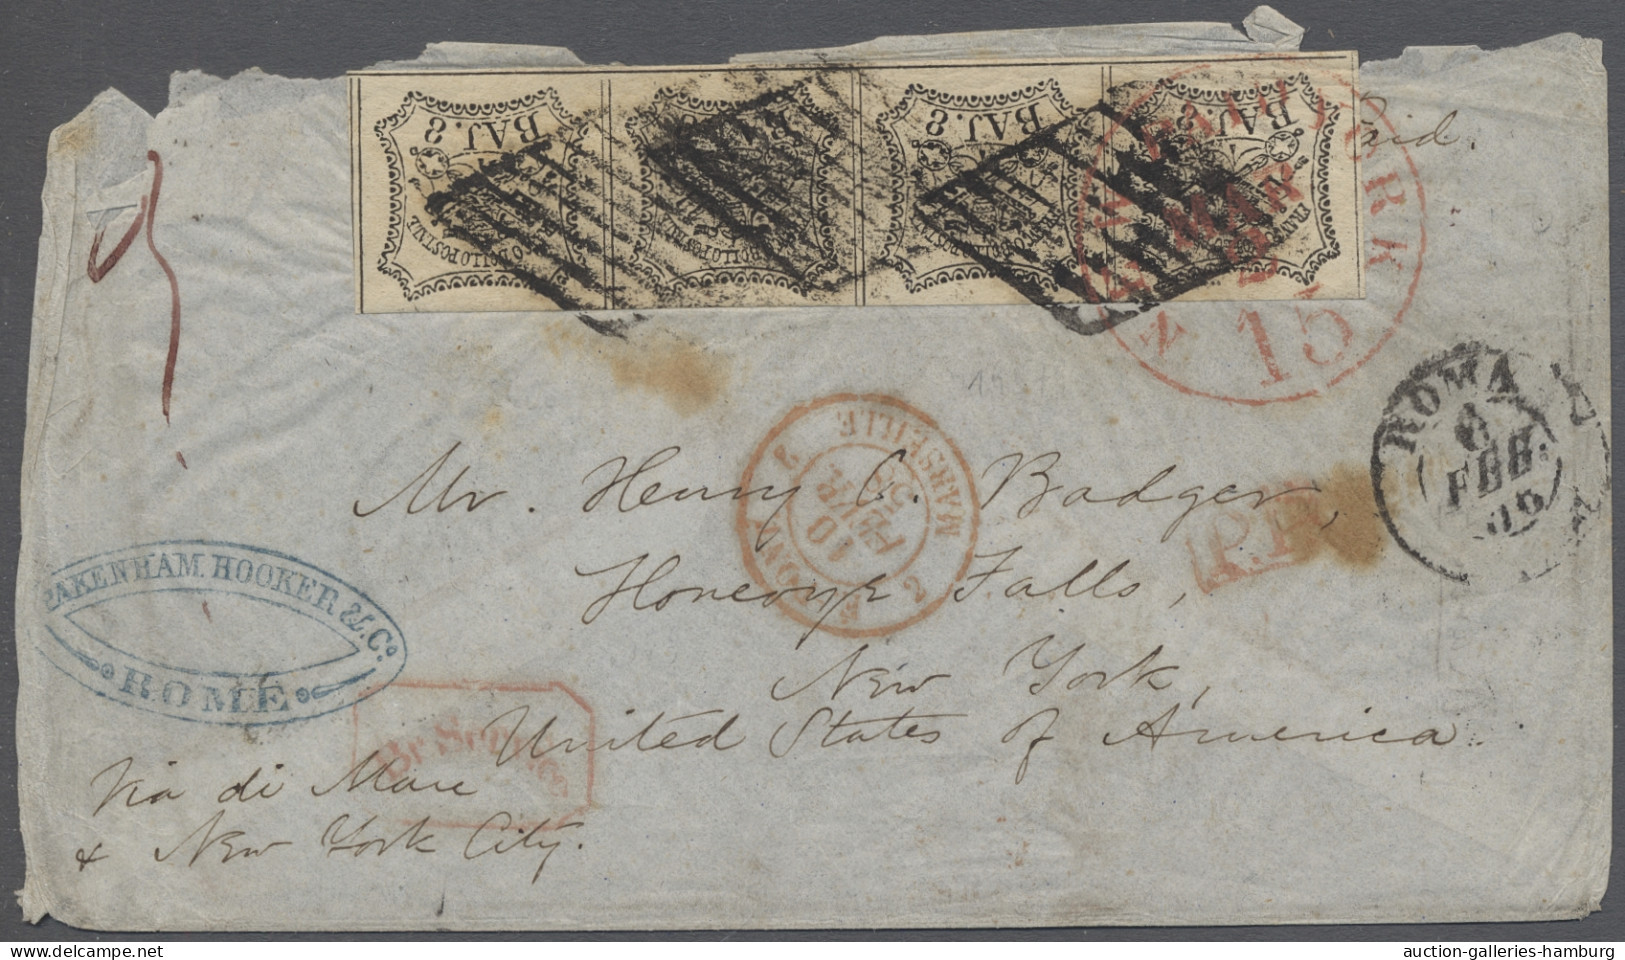 BAJ. 8 BAJ. 8 BAJ. 8
Paid.
NEW YORK
MAR
15
ROMA
6
FEB.
MARSEILLE
10
FEVR
2
P.P.
Mr. Henry C. Badger,
Honeoye Falls,
New York,
United States of America.
PAKENHAM. HOOKER & Co.
ROME
Br Service
Via di Mare
& New York City.
auction-galleries-hamburg